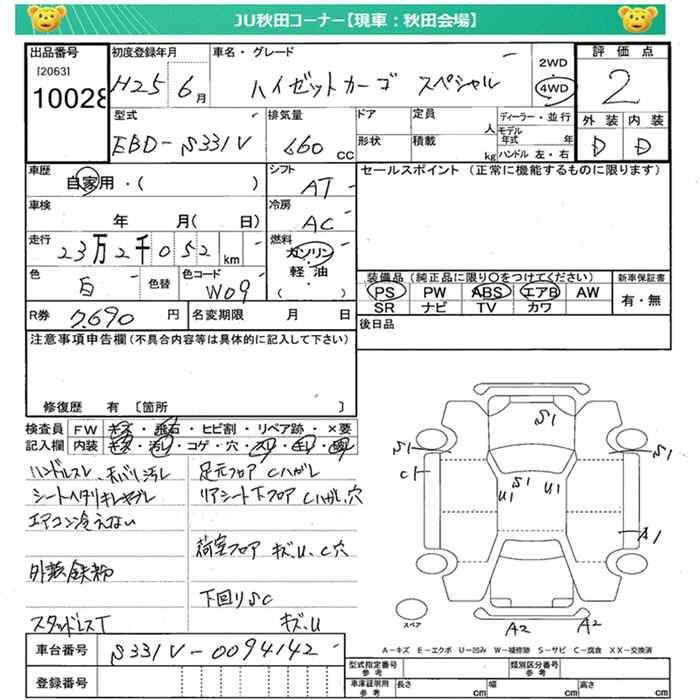 JU秋田コーナー【現車：秋田会場】
出品番号 初度登録年月 車名・グレード 評価点
[2063] H25 6月 ハイゼットカーゴ スペシャル 2WD 4WD 2
10028
型式 排気量 ドア 定員 人 ディーラー・並行 外装 内装
EBD-S331V 660 CC 形状 積載 kg モデル年式 年 ハンドル 左・右 D D
車歴 シフト セールスポイント（正常に機能するものに限ります）
自家用・( ) AT
車検 冷房
年 月( 日) AC
走行 燃料
23万2千052 km ガソリン
軽油
( )
色 白 色替 色コード W09
装備品（純正品に限り○をつけてください） 新車保証書
PS PW ABS エアB AW 有・無
SR ナビ TV カワ
R券 7,690 円 名変期限 月 日 後日品
注意事項申告欄（不具合内容等は具体的に記入して下さい）
修復歴 有 〔箇所 〕
検査員 FW キズ・飛石・ヒビ割・リペア跡・×要
記入欄 内装 キズ・汚レ・コゲ・穴・スリ
ハンドルスレ 足元フロア Cハガレ
シートヘタリキレヤブレ リアシート下フロア Cハガレ,穴
エアコン冷えない
荷室フロア キズU、C穴
外装鉄粉
下回りSC
スタッドレスT キズ、U
S1
S1 S1
C1
S1
U1 U1
A1
A2 A2
スペア
A-キズ E-エクボ U-凹み W-補修跡 S-サビ C-腐食 XX-交換済
車台番号 S331V-0094142
登録番号
型式指定番号 参考 類別区分番号 参考
車庫証明用 参考 長さ cm 幅 cm 高さ cm